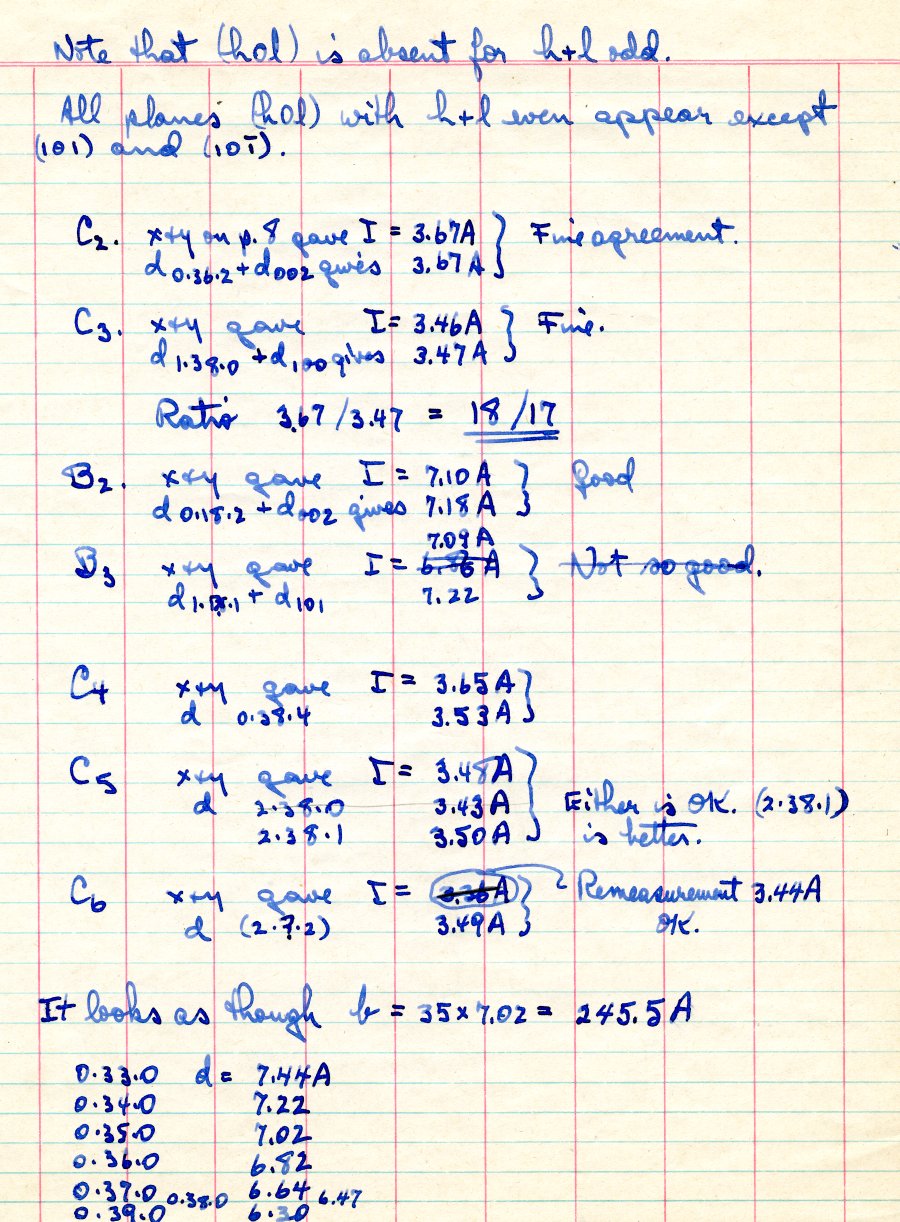 Note that (h0l) is absent for h+l odd.
All planes (h0l) with h+l even appear except
(101) and (10ī).
C2. x+y on p. 8 gave I = 3.67A } Fine agreement.
d0.36.2 + d002 gives 3.67A
C3. x+y gave I = 3.46A } Fine.
d1.38.0 + d100 gives 3.47A
Ratio 3.67/3.47 = 18/17
B2. x+y gave I = 7.10A } Good
d0.18.2 + d002 gives 7.18A
7.09A
B3 x+y gave I = A } Not so good.
d1. .1 + d101 7.22
C4 x+y gave I = 3.65A }
d 0.38.4 3.53A
C5 x+y gave I = 3.48A }
d 2.38.0 3.43A Either is OK. (2.38.1)
2.38.1 3.50A is better.
C6 x+y gave I = 3.36A } Remeasurement 3.44A
d (2.?.2) 3.49A OK.
It looks as though b = 35x7.02 = 245.5A
0.33.0 d = 7.44A
0.34.0 7.22
0.35.0 7.02
0.36.0 6.82
0.37.0 0.38.0 6.64 6.47
0.39.0 6.30